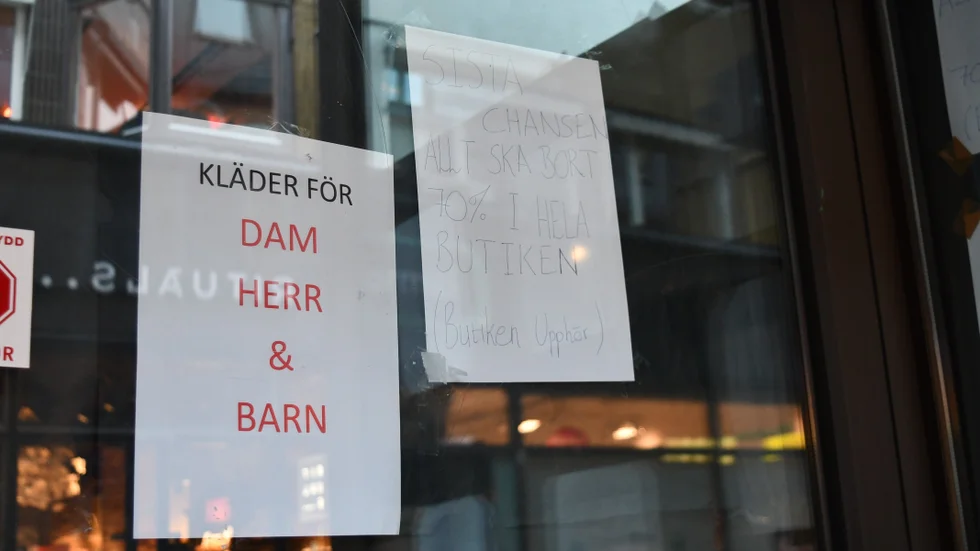 KLÄDER FÖR
DAM
HERR
&
BARN
SISTA
CHANSEN
ALLT SKA BORT
70% I HELA
BUTIKEN
(Butiken Upphör)
RITUALS...
70